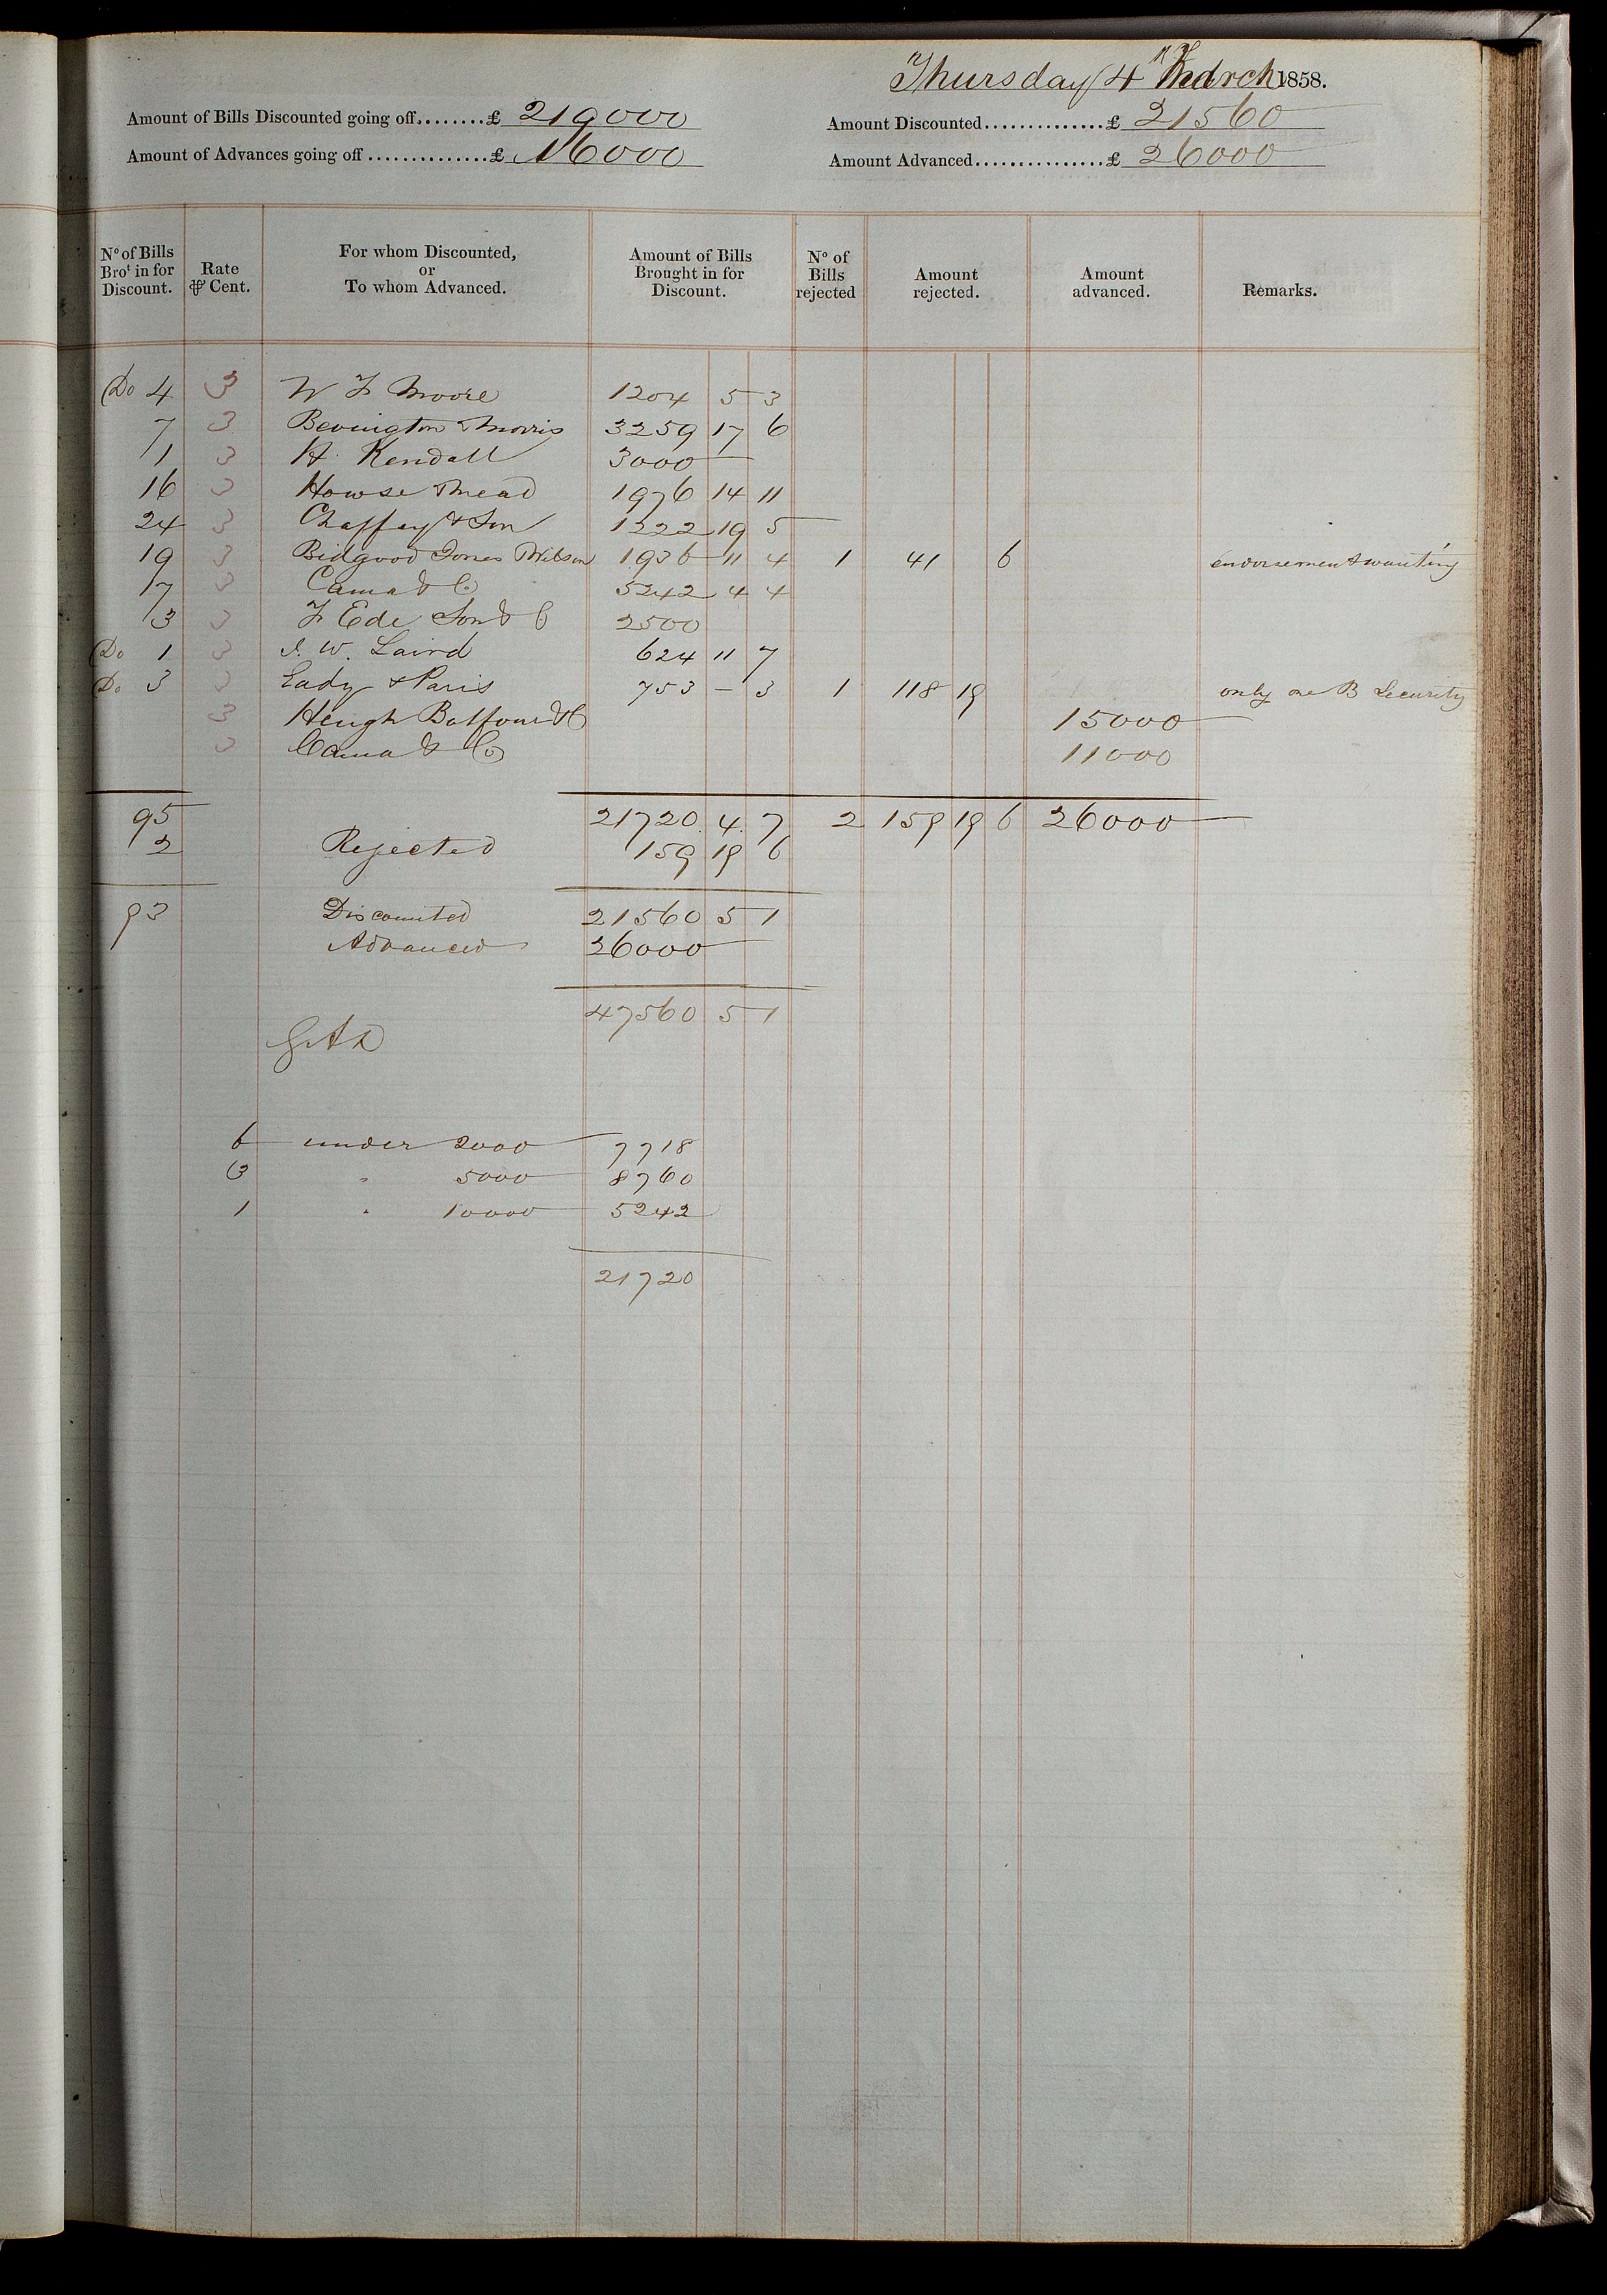 Thursday 4th March 1858.
Amount of Bills Discounted going off........£ 219000
Amount Discounted..............£ 21560
Amount of Advances going off..............£ 16000
Amount Advanced...............£ 26000
No of Bills Brot in for Discount. Rate ⅌ Cent. For whom Discounted, or To whom Advanced. Amount of Bills Brought in for Discount. No of Bills rejected Amount rejected. Amount advanced. Remarks.
Do 4 3 W F Moore 1204 5 3
7 3 Bevington & Morris 3259 17 6
1 3 H. Kendall 3000 —
16 3 Howse & Mead 1976 14 11
24 3 Chaffey & Son 1222 19 5
19 3 Bidgood Jones & Wilson 1936 11 4 1 41 6 endorsement wanting
17 3 Cama & Co 5242 4 4
3 3 F Ede Son & C 2500
Do 1 3 J. W. Laird 624 11 7
Do 3 3 Eady & Paris 753 – 3 1 118 19 only one B Security
3 Heugh Balfour & C 15000
3 Cama & Co 11000
95 21720. 4. 7 2 159 19 6 26000
2 Rejected 159 19 6
93 Discounted 21560 5 1
Advanced 26000
47560 5 1
6 under 2000 7718
3 " 5000 8760
1 " 10000 5242
21720